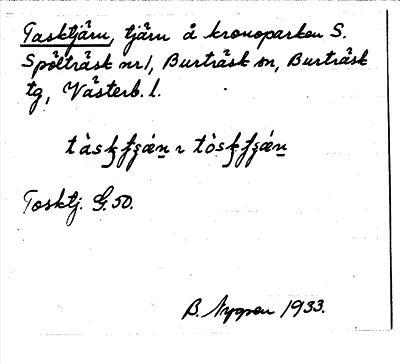 Tasktjärn, tjärn å kronoparken S.
Spölträsk nr 1, Burträsk sn, Burträsk
tg, Västerb. l.
Tosktj. G.50.
B. Nygren 1933.